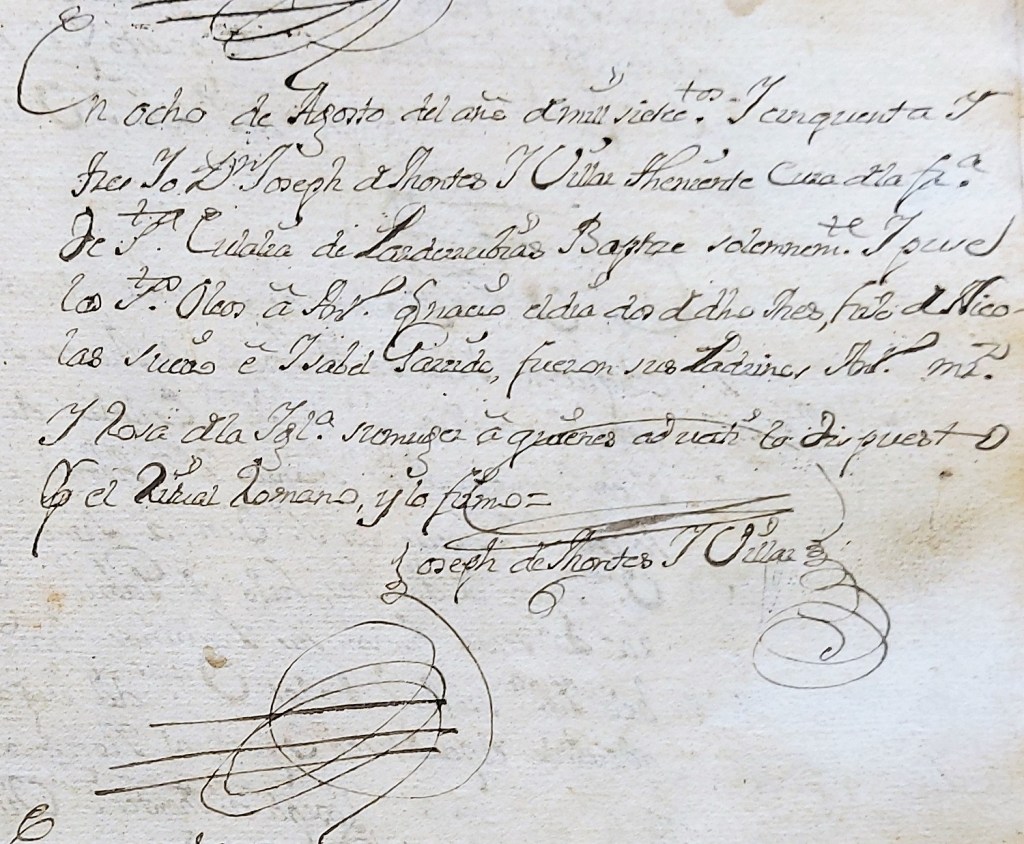 En ocho de Agosto del año d mill sietec.tos Y cinquenta Y
tres Yo Dn Joseph d Montes Y Villar theniente Cura dla fa.
De S.ta Eulalia de Valderrubias Baptze solemnem.te Y puse
los S.tos Oleos â Anl. Ygnacio el dia dos d dho Mes, fijo d Nico-
las suero ê Ysabel Garrido, fueron sus Padrinos Anl. mz.
Y Rosa dla Igl.a su muger â quienes advertí lo dispuesto
Pr el Ritual Romano, y lo firmo =
Joseph de Montes Y Villar